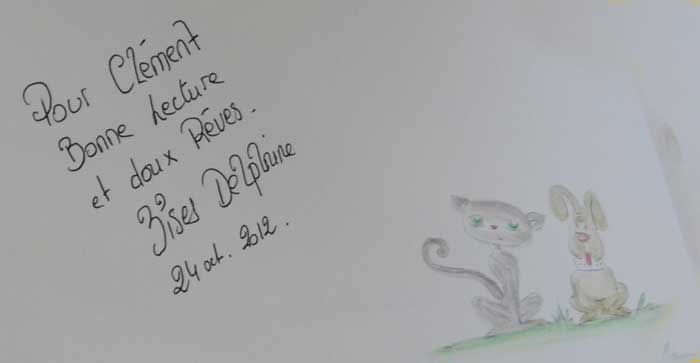 Pour Clément
Bonne Lecture
et doux Rêves.
Bises Delphine
24 oct. 2012.